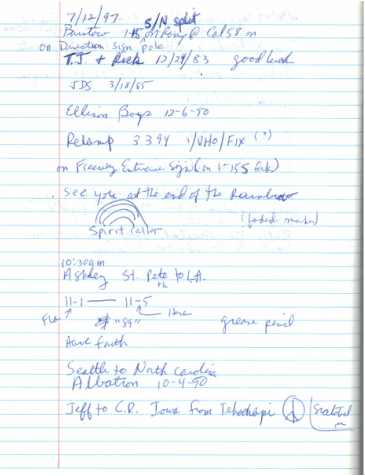 7/12/97 S/N split
Barstow I-15 on Ramp @ Cal 58 m
on Direction Sign pole
T.J. & Rick 12/24/83 good luck
JDS 3/18/85
Ellison Boys 12-6-90
Relamp 3394 1/VHO/FIX (?)
on Freeway Entrance Sign (on I-15S fork)
See you at the end of the Rainbow
(faded marker)
Spirit Caller
10:30am
Ashley St. Pete to L.A.
Fla
11-1 — 11-5
"89" here
grease pencil
Have faith
Seattle to North Carolina
Albatron 10-4-90
Jeff to C.R. Iowa from Tehachapi